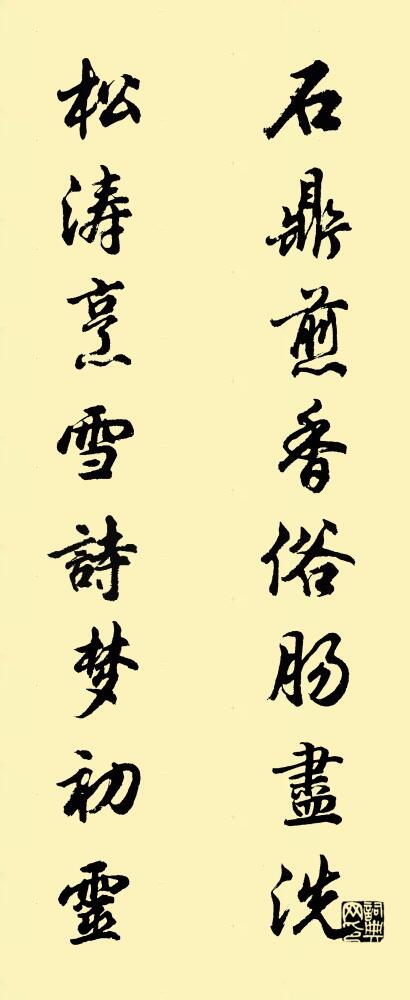 石鼎煎香俗肠盡洗
松涛烹雪詩梦初靈